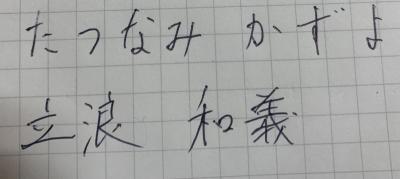 たつなみ かずよ
立浪 和義